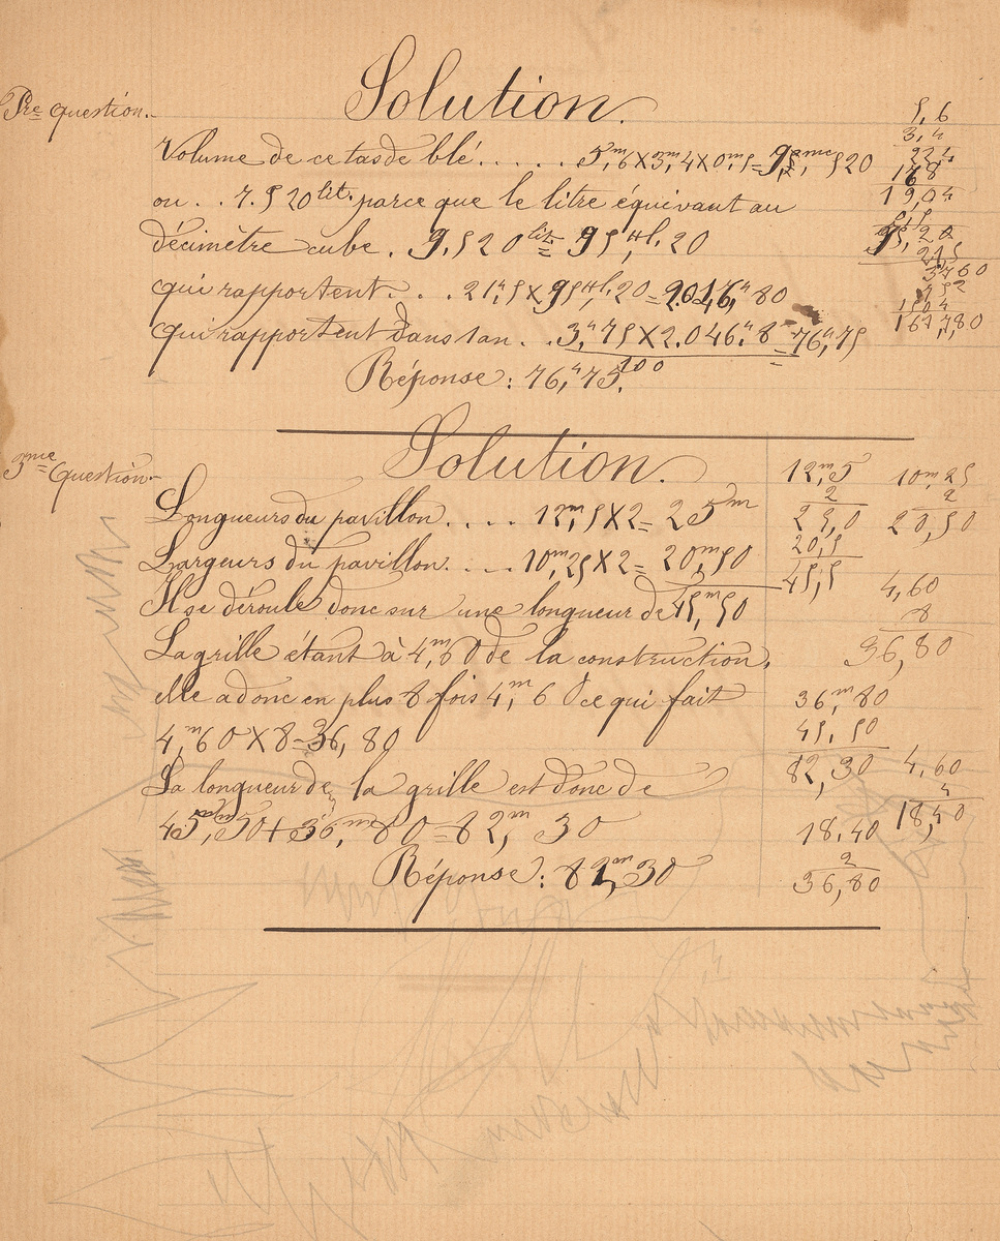 Solution.
1re question.
Volume de ce tas de blé...... 5,m6 X 3m,4 X 0m,5 = 9,mc520
ou.. 9.520 lit. parce que le litre équivaut au
décimètre cube. 9.520 lit = 95Hl.20
qui rapportent... 21f,5 X 95Hl,20 = 2.046,f80
qui rapportent dans 1 an.. 3,f75 X 2.046,f8 = 76f,75
100
Réponse: 76,f75.
5,6
3,4
224
168
19,04
95,20
21,5
Solution.
3me Question.
Longueurs du pavillon.... 12m,5 X 2 = 25m
Largeurs du pavillon.... 10m,25 X 2 = 20m,50
Il se déroule donc sur une longueur de 45m,50
La grille étant à 4,m60 de la construction,
elle a donc en plus 8 fois 4,m60 ce qui fait
4,m60 X 8 = 36,80
La longueur de la grille est donc de
45,m50 + 36,m80 = 82,m30
Réponse: 82,m30
12m,5
2
25,0
20,5
45,5
10m,25
2
20,50
4,60
8
36,80
36m,80
45,50
82,30
4,60
4
18,40
18,40
2
36,80